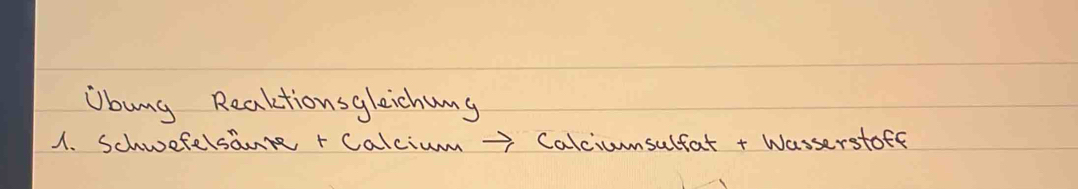 Übung Reaktionsgleichung
1. Schwefelsäure + Calcium → Calciumsulfat + Wasserstoff